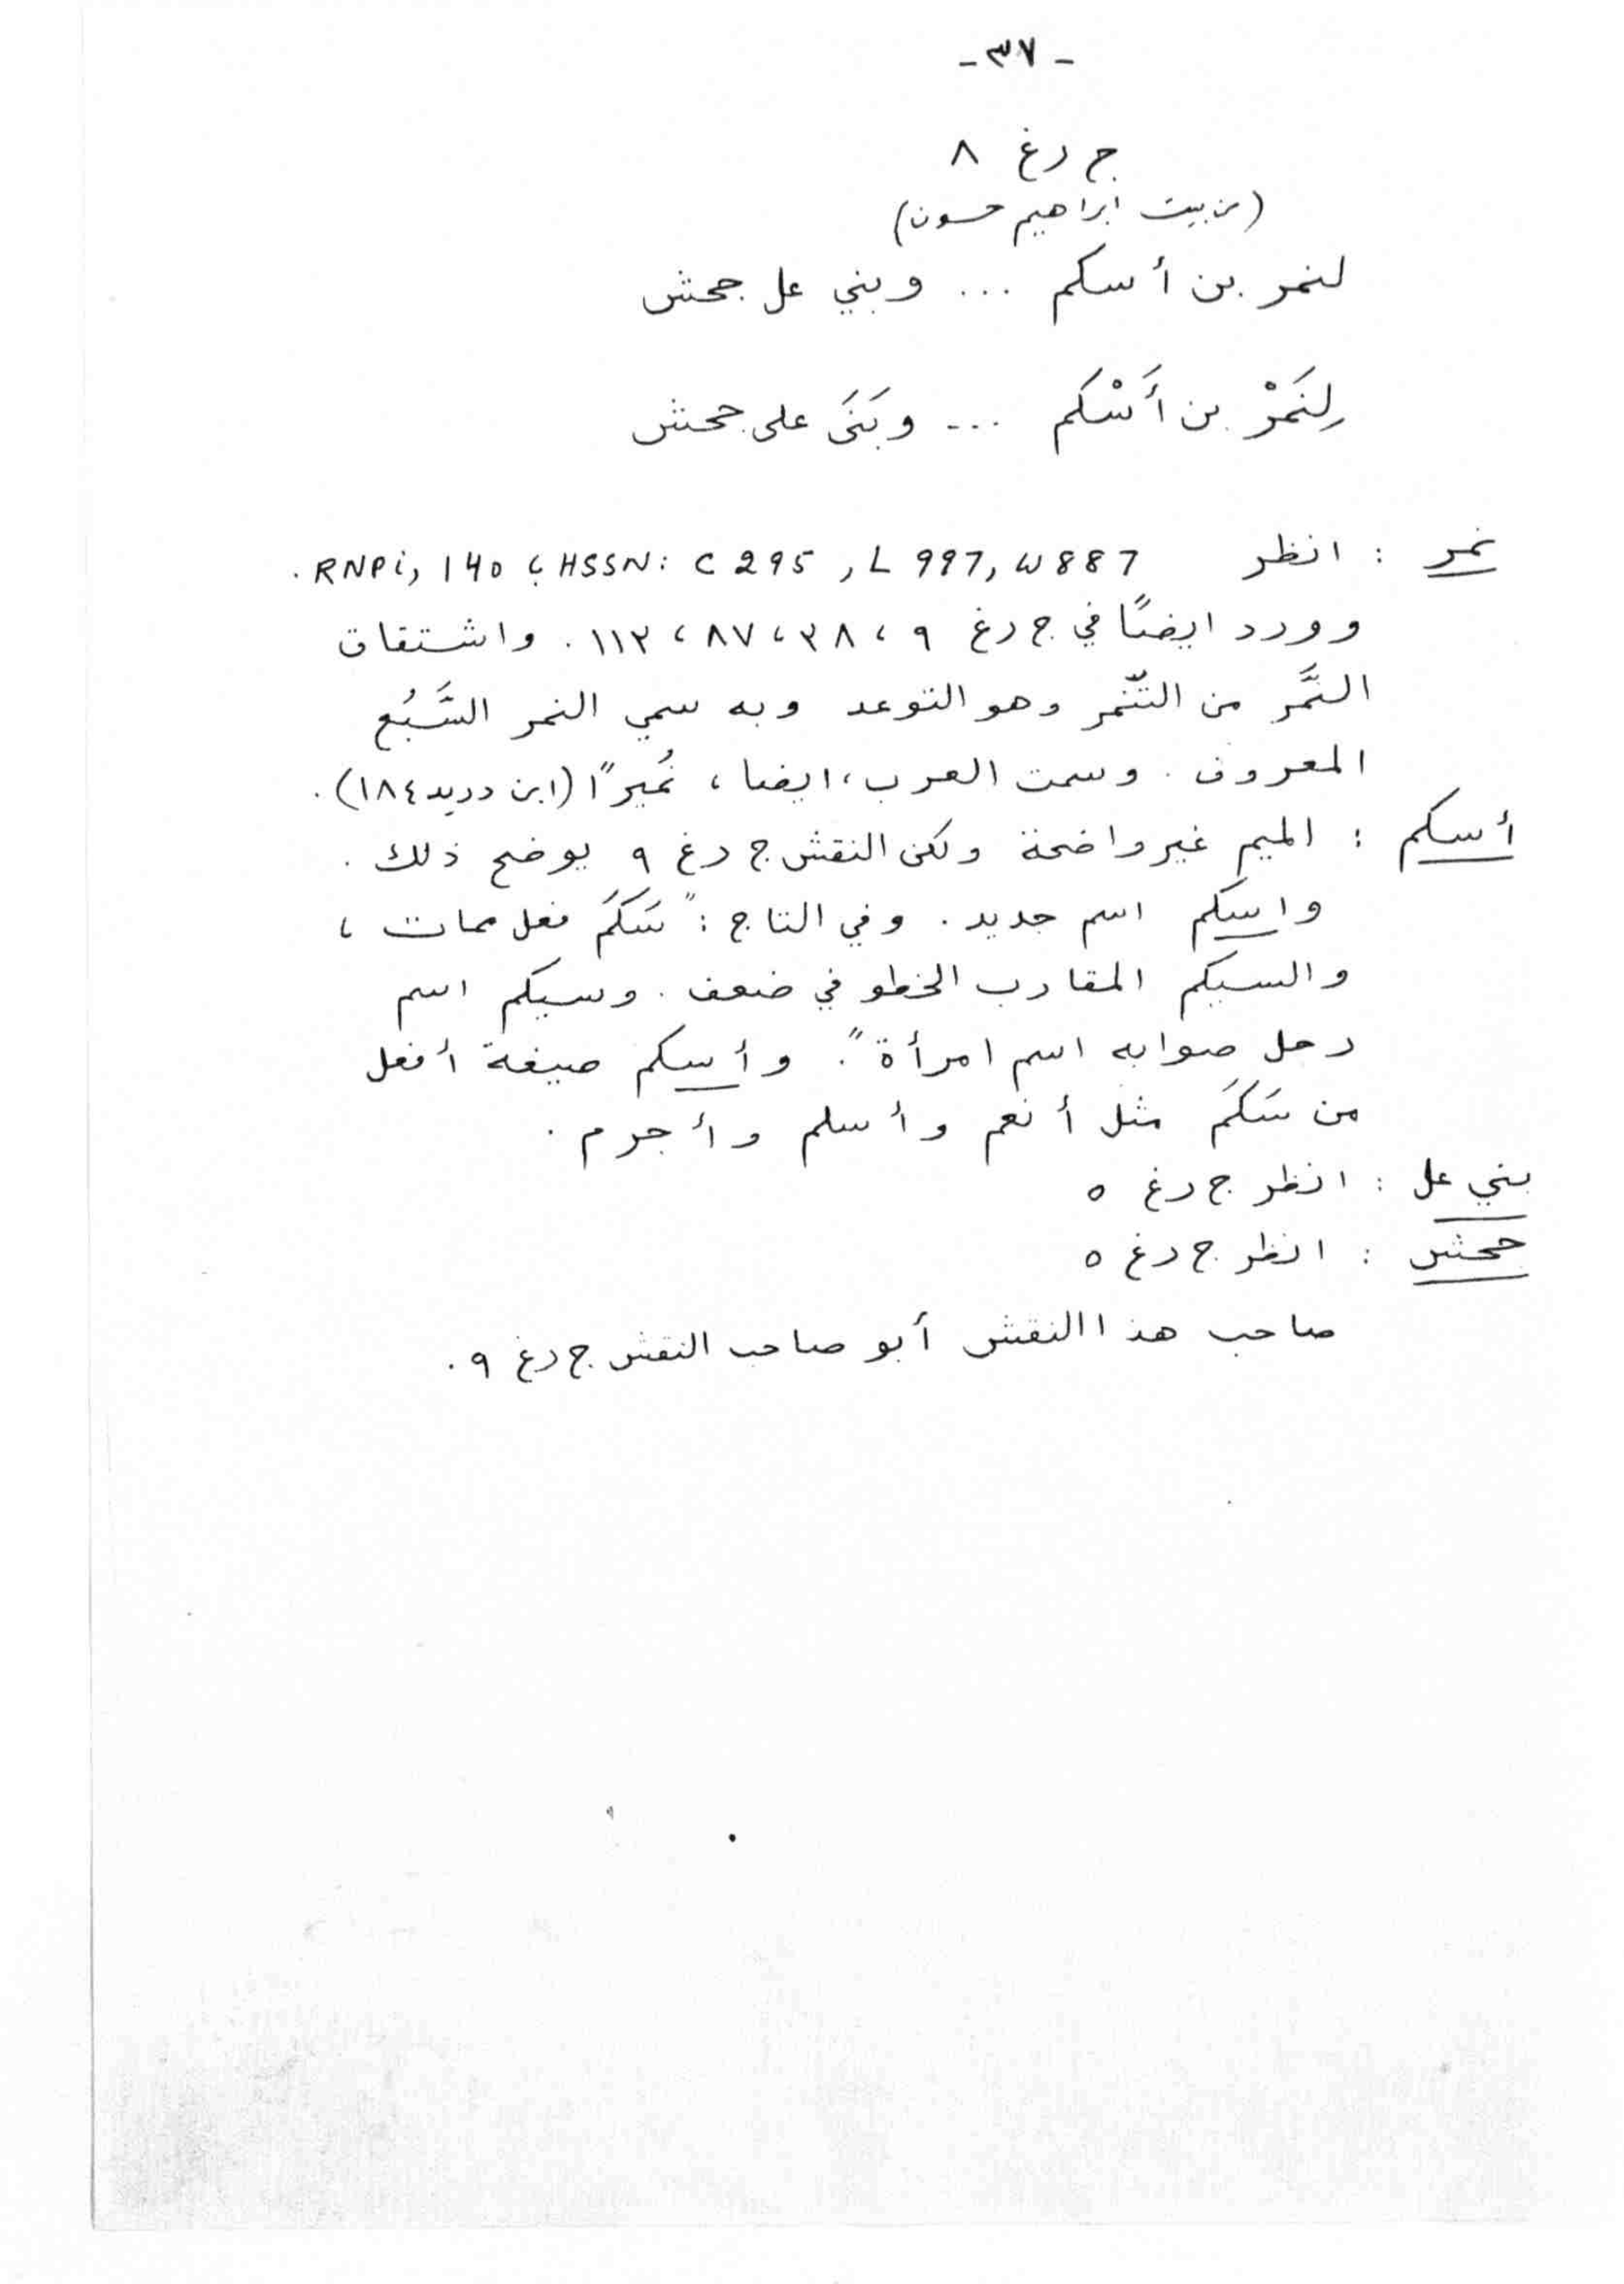 - ٣٧ -
ج رغ ٨
(من بيت ابراهيم حسون)
لنمر بن أسكم ... وبني عل جحش
لِنَمَرْ بن أَسْكَم ... وبَنَى على جحش
نمر : انظر RNPi, 140 ؛ HSSN: C 295, L 997, W 887 .
وورد ايضًا في ج رغ ٩ ، ٣٨ ، ٨٧ ، ١١٣ . واشتقاق
النَّمَر من التنّمر وهو التوعد وبه سمي النمر السَّبُع
المعروف . وسمت العرب ، ايضا ، نُميرًا (ابن دريد ١٨٤) .
أسكم : الميم غير واضحة ولكن النقش ج رغ ٩ يوضح ذلك .
واسكم اسم جديد . وفي التاج : "سَكَمَ فعل ممات ،
والسيكم المقارب الخطو في ضعف . وسيكم اسم
رجل صوابه اسم امرأة" . وأسكم صيغة أفعل
من سَكَمَ مثل أنعم وأسلم وأجرم .
بني عل : انظر ج رغ ٥
جحش : انظر ج رغ ٥
صاحب هذا النقش أبو صاحب النقش ج رغ ٩ .